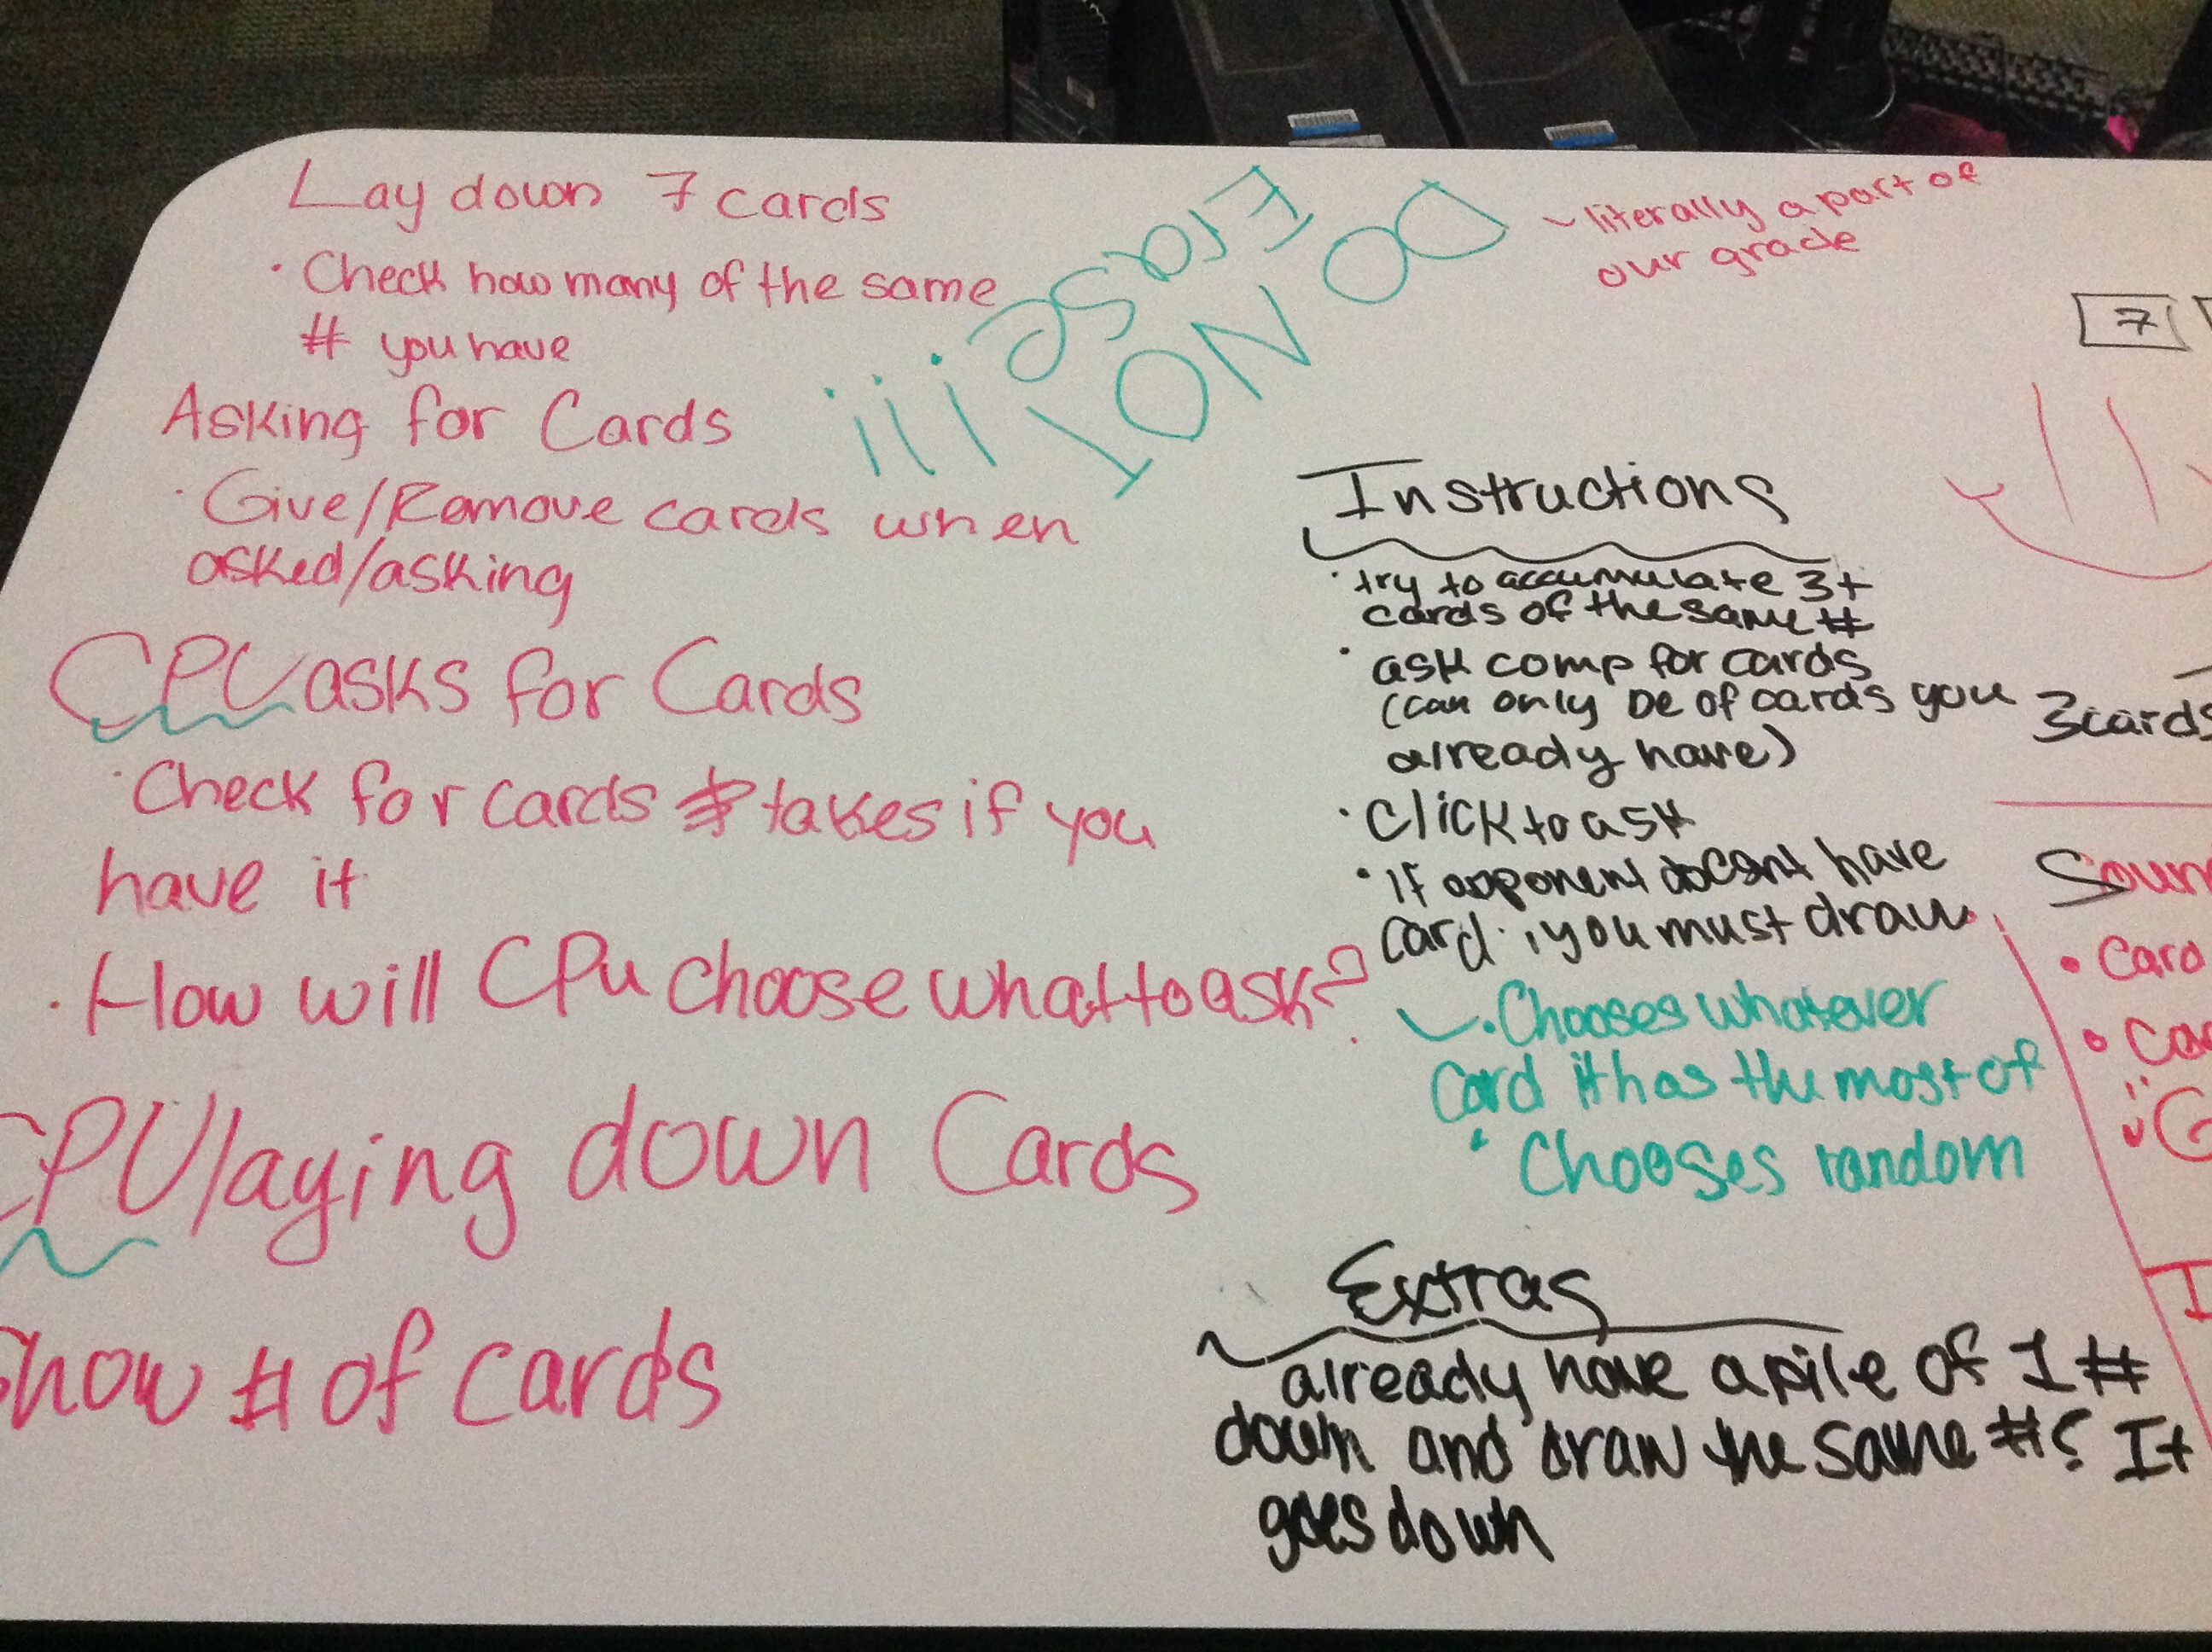 Lay down 7 cards
· Check how many of the same
# you have
Asking for Cards
· Give/Remove cards when
asked/asking
CPU asks for Cards
· Check for cards & takes if you
have it
· How will CPU choose what to ask?
CPU laying down Cards
Show # of cards
DO NOT
Erase!!!
literally a part of
our grade
7
Instructions
· try to accumulate 3+
cards of the same #
· ask comp for cards
(can only be of cards you
already have)
· Click to ask
· if opponent doesnt have
card, you must draw
· Chooses whatever
Card it has the most of
· Chooses random
Extras
already have a pile of 1 #
down and draw the same #? It
goes down
3 cards
Soun
• Card
• Ca
I